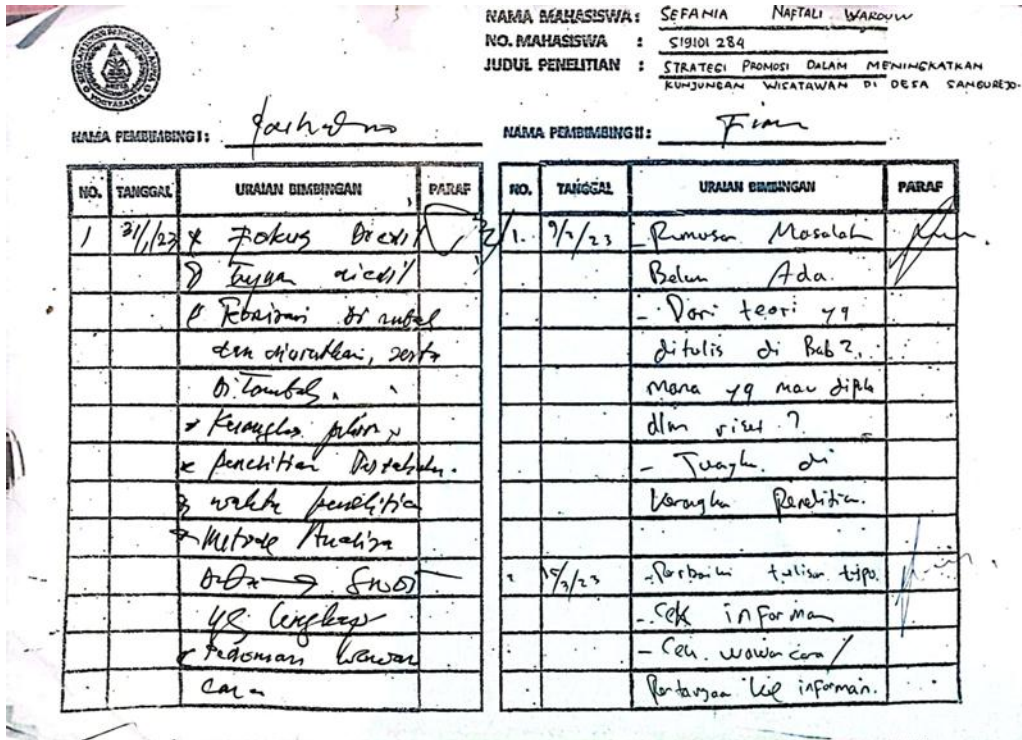 NAMA MAHASISWA : SEFANIA NAFTALI WAROUW
NO. MAHASISWA : 519101 284
JUDUL PENELITIAN : STRATEGI PROMOSI DALAM MENINGKATKAN
KUNJUNGAN WISATAWAN DI DESA SANGUREJO.
YOGYAKARTA
NAMA PEMBIMBING I :
NAMA PEMBIMBING II :
NO. TANGGAL URAIAN BIMBINGAN PARAF
1 31/1/23 Fokus
Tujuan
dan diurutkan, serta
penelitian
waktu penelitian
Metode Analisa
SWOT
yg lengkap
Pedoman wawan
cara
NO. TANGGAL URAIAN BIMBINGAN PARAF
1. - Rumusan Masalah
Belum Ada.
- Dari teori yg
ditulis di Bab 2,
mana yg mau
dlm riset ?
- di
Kerangka Penelitian.
15/3/23 - Perbaiki tulisan typo.
- Cek informan
- Cek wawancara /
Pertanyaan informan.